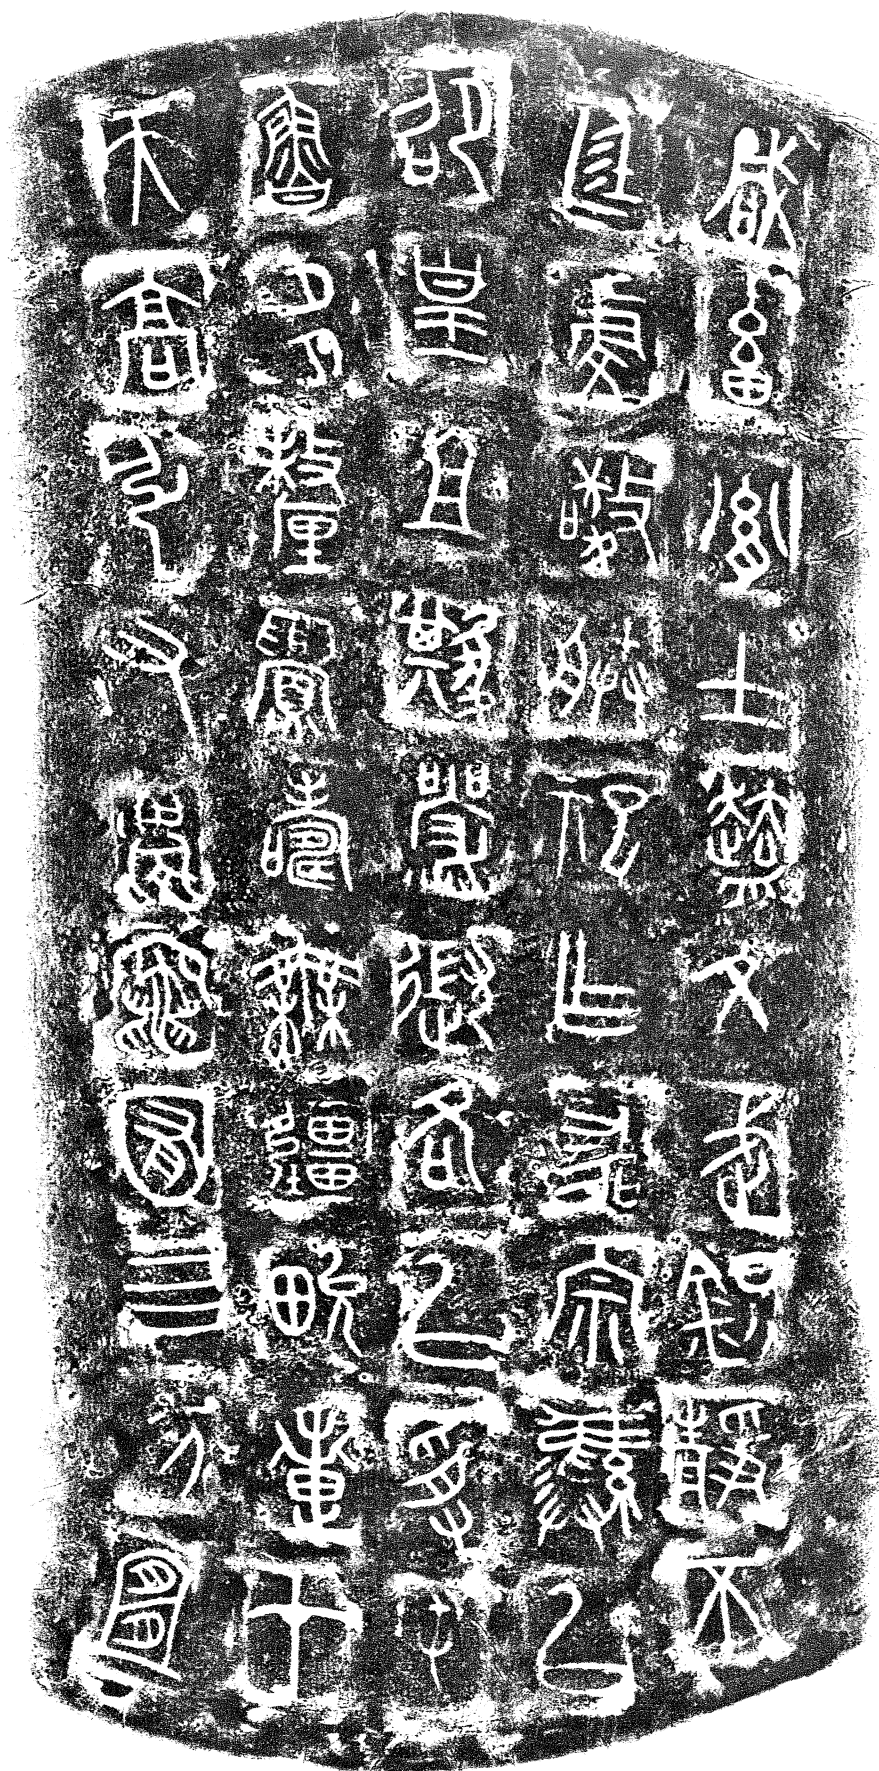 咸畜胤士盍=文武鎮靜不
廷虔敬朕祀乍𠷎宗彝以
卲皇且𡢁嚴𢕌各以受屯
魯多釐眉壽無疆畯疐才
天高弘又慶竈囿四方宜